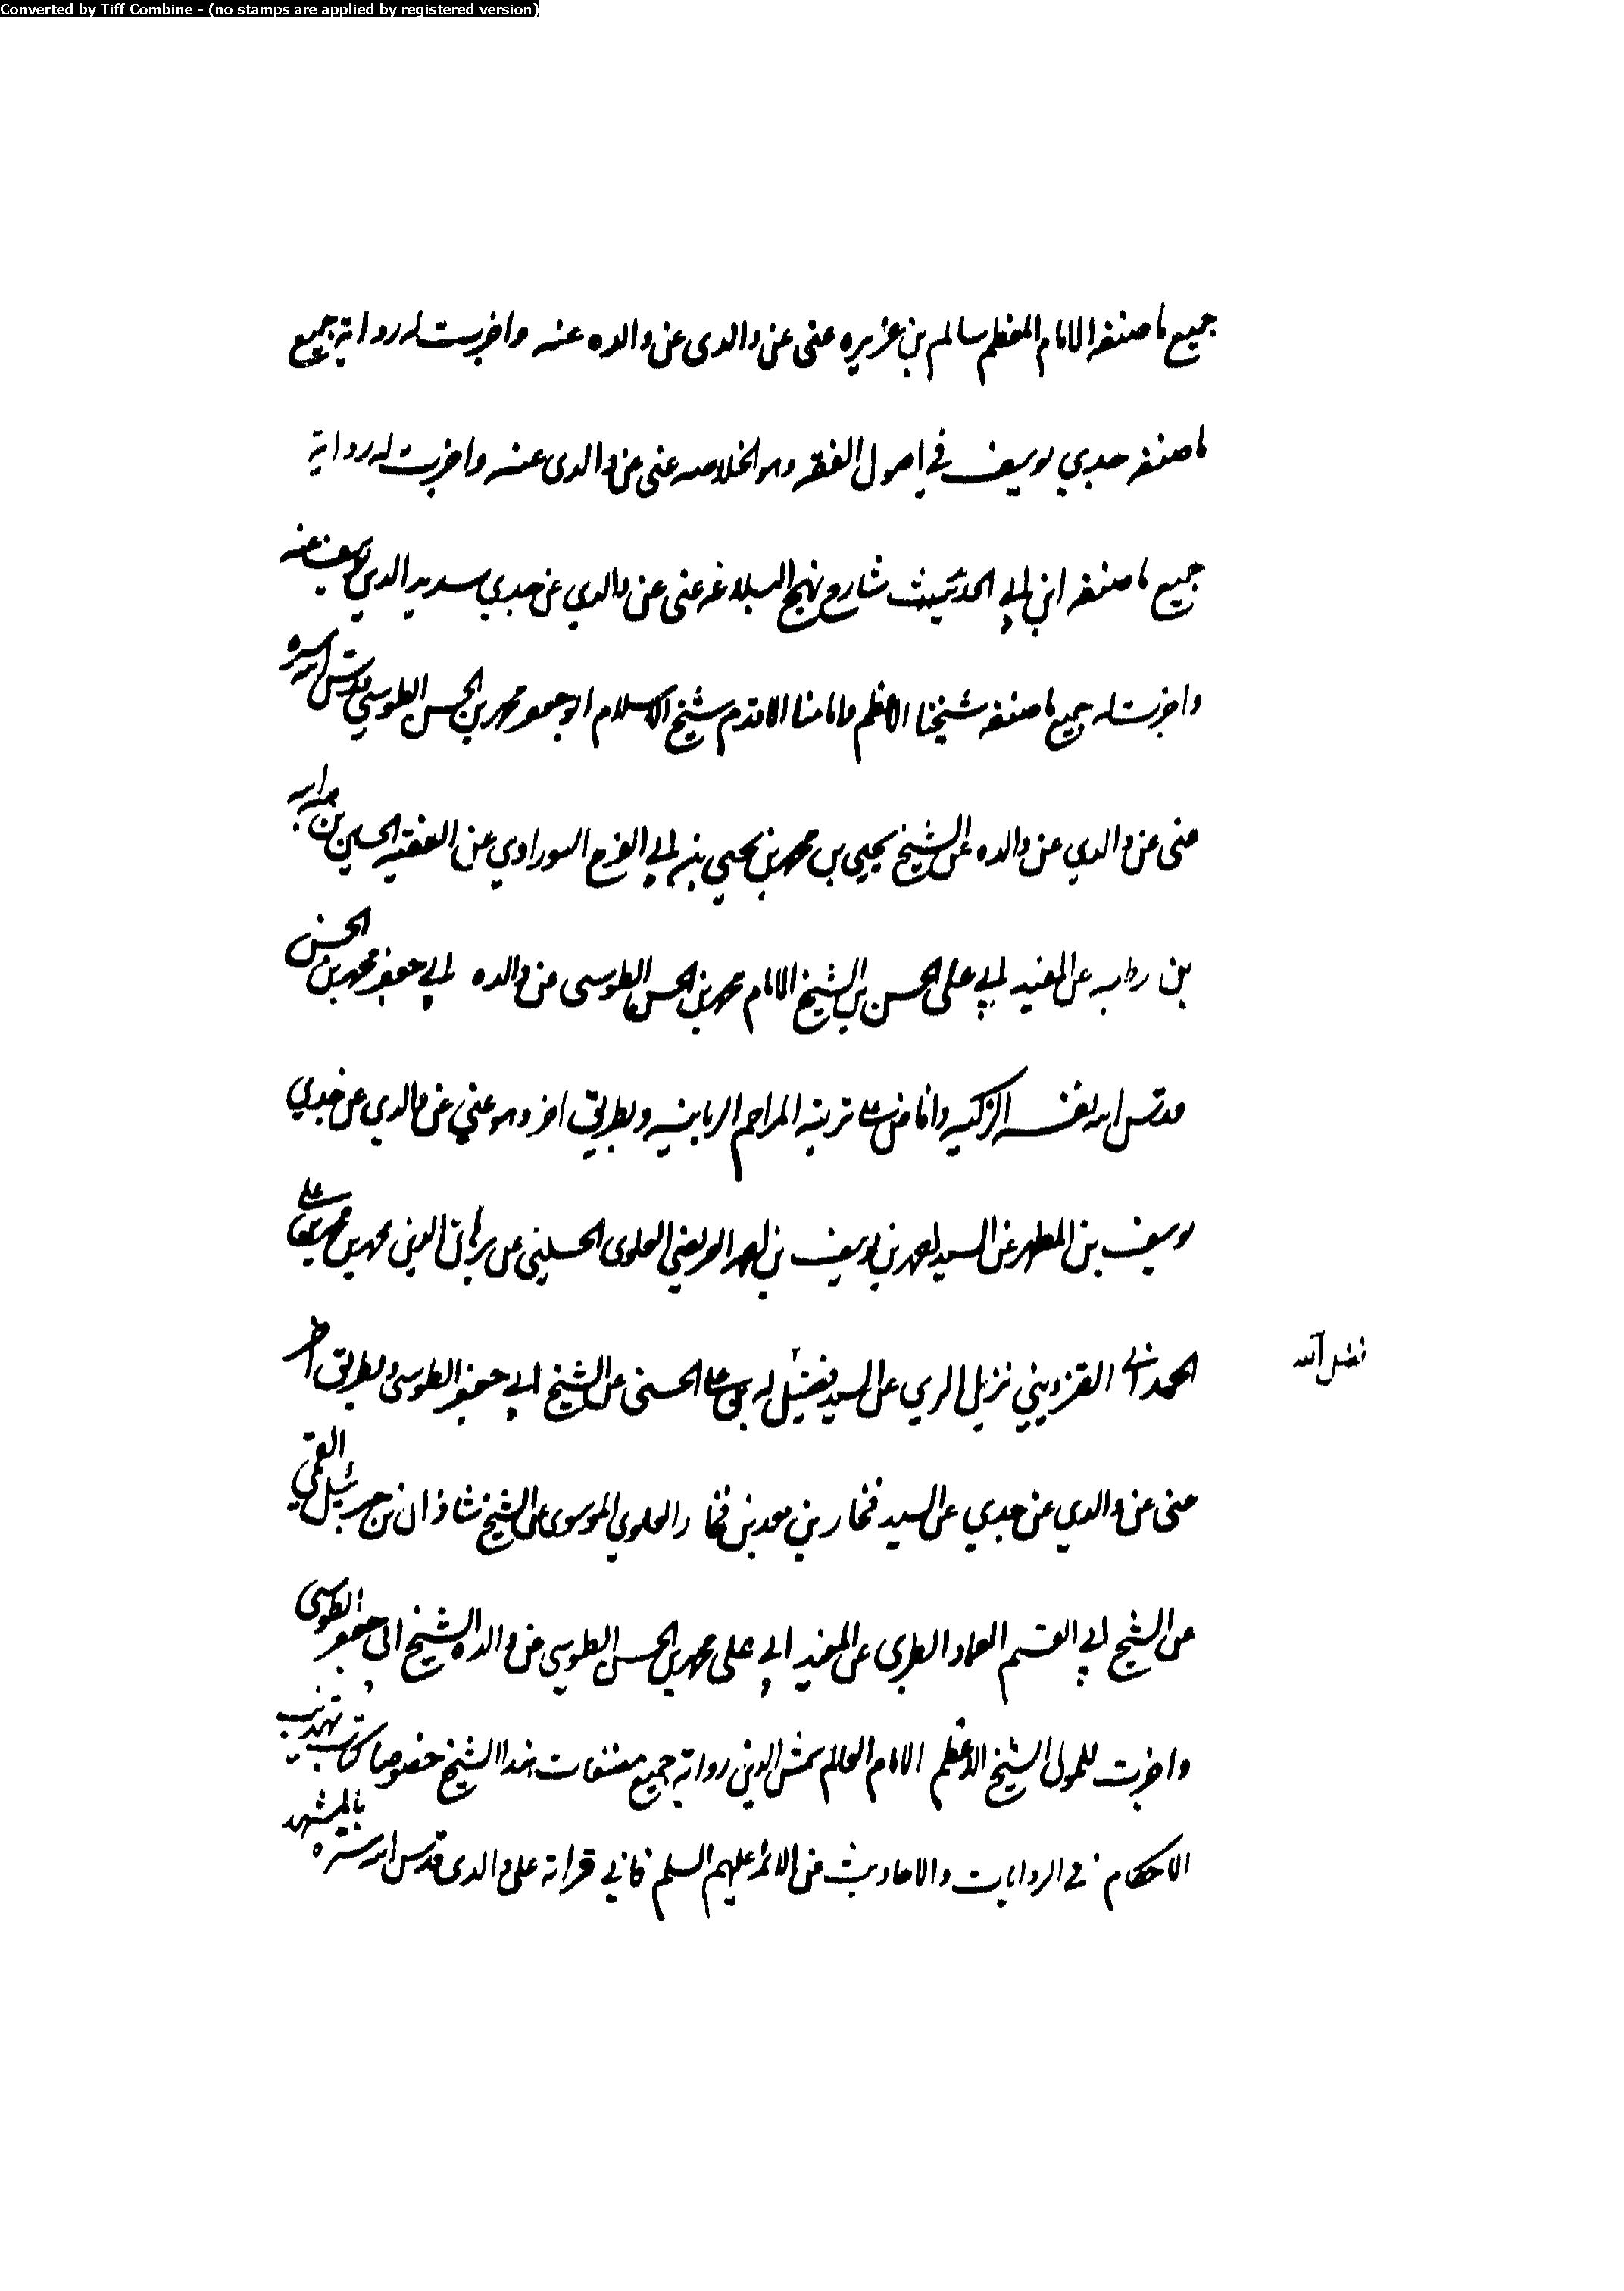 Converted by Tiff Combine - (no stamps are applied by registered version)
جميع ما صنفه الامام المعظم سالم بن عزيزه عنى عن والدى عن والده عنه واجزت له رواية جميع
ما صنفه جدي يوسف في اصول الفقه وهو الخلاصه عنى عن والدى عنه واجزت له رواية
جميع ما صنفه ابن ابي الحديد شارح نهج البلاغه عنى عن والدي عن جدي سديد الدين يوسف عنه
واجزت له جميع ما صنفه شيخنا الاعظم وامامنا الاقدم شيخ الاسلام ابو جعفر محمد بن الحسن الطوسي قدس الله سره
عنى عن والدي عن والده عن الشيخ يحيى بن محمد بن يحيى بن ابي الفرج السوراوي عن الفقيه الحسين بن هبة الله
بن رطبه عن المفيد ابي على الحسن بن الشيخ الامام محمد بن الحسن الطوسى عن والده ابي جعفر محمد بن الحسن
قدس الله نفسه الزكيه وافاض على تربته المراحم الربانيه وبطريق اخر وهو عني عن والدي عن جدي
يوسف بن المطهر عن السيد احمد بن يوسف بن احمد العريضي العلوى الحسيني عن برهان الدين محمد بن محمد بن على
الحمدانى القزويني نزيل الري عن السيد فضل الله بن على الحسنى عن الشيخ ابي جعفر الطوسى وبطريق اخر
فضل الله
عنى عن والدي عن جدي عن السيد فخار بن معد بن فخار العلوي الموسوى عن الشيخ شاذان بن جبرئيل القمي
عن الشيخ ابي القسم العماد الطبرى عن المفيد ابي على محمد بن الحسن الطوسي عن والده الشيخ ابى جعفر الطوسى
واجزت للمولى الشيخ الاعظم الامام العالم شمس الدين رواية جميع مصنفات هذا الشيخ خصوصا كتاب تهذيب
الاحكام في الروايات والاحاديث عن الائمة عليهم السلم فاني قراته على والدى قدس الله سره بالمشهد